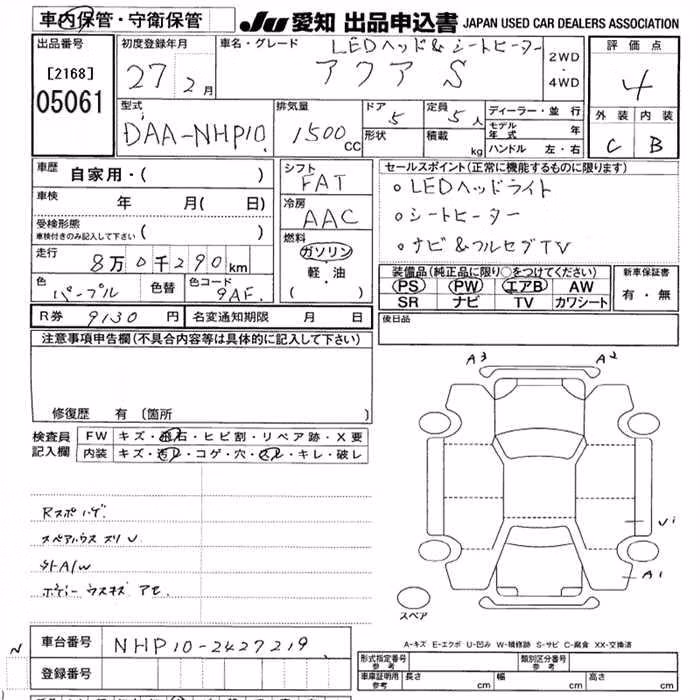 車内保管・守衛保管
JU 愛知 出品申込書 JAPAN USED CAR DEALERS ASSOCIATION
出品番号
[2168]
05061
初度登録年月
27 2月
車名・グレード
LEDヘッド&シートヒーター
アクア S
2WD
・
4WD
評価点
4
外装 内装
C B
型式
DAA-NHP10
排気量
1500cc
ドア 5
形状
定員 5人
積載 kg
ディーラー・並行
モデル年式 年
ハンドル 左・右
車歴 自家用・( )
車検 年 月( 日)
受検形態
車検付きのみ記入して下さい ( )
走行 8万0千290km
色 パープル 色替 色コード 9AF
R券 9130円 名変通知期限 月 日
シフト
FAT
冷房
AAC
燃料
ガソリン
軽・油
( )
セールスポイント(正常に機能するものに限ります)
○LEDヘッドライト
○シートヒーター
○ナビ&フルセグTV
装備品(純正品に限り○をつけてください)
PS PW エアB AW
SR ナビ TV カワシート
新車保証書
有・無
後日品
注意事項申告欄(不具合内容等は具体的に記入して下さい)
修復歴 有 〔箇所 〕
検査員記入欄
FW キズ・飛石・ヒビ割・リペア跡・X要
内装 キズ・汚レ・コゲ・穴・スレ・キレ・破レ
Rスポハゲ
スペアハウス スリ U
外A/W
ボディー ウスキズ アセ
A3 A2
U1
A1
スペア
A-キズ E-エクボ U-凹み W-補修跡 S-サビ C-腐食 XX-交換済
N
車台番号 NHP10-2427219
登録番号
形式指定番号 参考
類別区分番号 参考
車庫証明用 参考 長さ cm 幅 cm 高さ cm